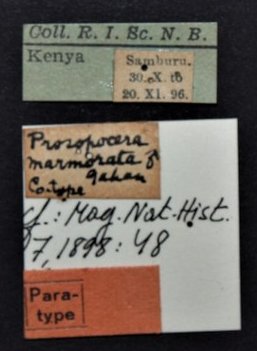 Coll. R. I. Sc. N. B.
Kenya
Samburu.
30. X. to
20. XI. 96.
Prosopocera
marmorata ♂
Gahan
Co-type
cf.: Mag. Nat. Hist.
7, 1898: 48
Para-
type